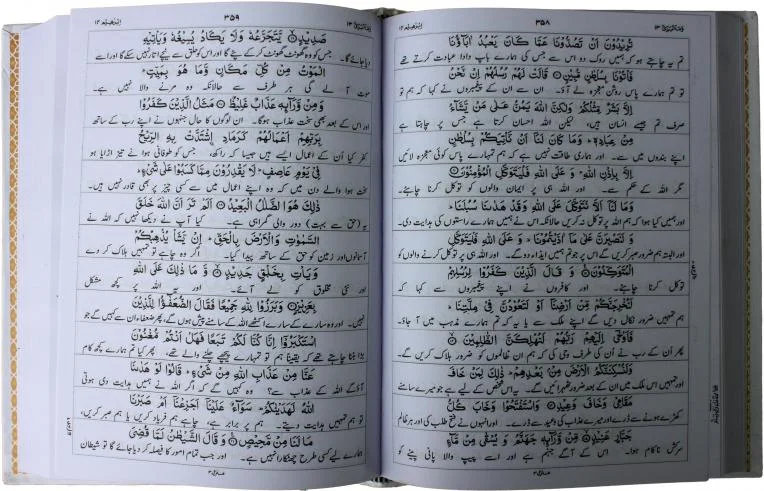 وَمَآ اُبَرِّئُ ١٣
٣٥٨
اِبْرٰهِيْم ١٤
تُرِيْدُوْنَ اَنْ تَصُدُّوْنَا عَمَّا كَانَ يَعْبُدُ اٰبَآؤُنَا
تم یہ چاہتے ہو کہ ہمیں روک دو اس سے جس کی ہمارے باپ دادا عبادت کرتے تھے
فَاْتُوْنَا بِسُلْطٰنٍ مُّبِيْنٍ۝ قَالَتْ لَهُمْ رُسُلُهُمْ اِنْ نَّحْنُ
تو تم ہمارے پاس روشن معجزہ لے آؤ۔ ان سے ان کے پیغمبروں نے کہا کہ ہم تو
اِلَّا بَشَرٌ مِّثْلُكُمْ وَلٰكِنَّ اللّٰهَ يَمُنُّ عَلٰى مَنْ يَّشَآءُ
صرف تم جیسے انسان ہیں، لیکن اللہ احسان کرتا ہے جس پر چاہتا ہے
مِنْ عِبَادِهٖ ؕ وَمَا كَانَ لَنَآ اَنْ نَّاْتِيَكُمْ بِسُلْطٰنٍ
اپنے بندوں میں سے۔ اور ہماری طاقت نہیں ہے کہ ہم تمہارے پاس کوئی معجزہ لائیں
اِلَّا بِاِذْنِ اللّٰهِ ؕ وَ عَلَى اللّٰهِ فَلْيَتَوَكَّلِ الْمُؤْمِنُوْنَ۝
مگر اللہ کے حکم سے۔ اور اللہ ہی پر ایمان والوں کو توکل کرنا چاہئے۔
وَمَا لَنَآ اَلَّا نَتَوَكَّلَ عَلَى اللّٰهِ وَقَدْ هَدٰىنَا سُبُلَنَا ؕ
اور ہمیں کیا ہوا کہ ہم اللہ پر توکل نہ کریں حالانکہ اس نے ہمیں ہمارے راستوں کی ہدایت دی۔
وَ لَنَصْبِرَنَّ عَلٰى مَآ اٰذَيْتُمُوْنَا ؕ وَ عَلَى اللّٰهِ فَلْيَتَوَكَّلِ
اور البتہ ہم ضرور صبر کریں گے اس پر جو تم ہمیں ایذاء دو گے۔ اور اللہ ہی پر توکل کرنے والوں کو
الْمُتَوَكِّلُوْنَ۝ وَ قَالَ الَّذِيْنَ كَفَرُوْا لِرُسُلِهِمْ
توکل کرنا چاہئے۔ اور کافروں نے اپنے پیغمبروں سے کہا کہ
لَنُخْرِجَنَّكُمْ مِّنْ اَرْضِنَآ اَوْ لَتَعُوْدُنَّ فِيْ مِلَّتِنَا ؕ
ہم تمہیں ضرور نکال دیں گے اپنے ملک سے یا یہ کہ تم ہمارے مذہب میں آ جاؤ۔
فَاَوْحٰٓى اِلَيْهِمْ رَبُّهُمْ لَنُهْلِكَنَّ الظّٰلِمِيْنَ۝
پھر ان کے رب نے ان کی طرف وحی کی کہ ہم ان ظالموں کو ضرور ہلاک کریں گے۔
وَلَنُسْكِنَنَّكُمُ الْاَرْضَ مِنْۢ بَعْدِهِمْ ؕ ذٰلِكَ لِمَنْ خَافَ
اور تمہیں اس ملک میں ان کے بعد ضرور ٹھہرائیں گے۔ یہ اس شخص کے لئے ہے جو میرے سامنے
مَقَامِيْ وَخَافَ وَعِيْدِ۝ وَاسْتَفْتَحُوْا وَخَابَ كُلُّ
کھڑے ہونے سے ڈرے اور میرے عذاب کی وعید سے ڈرے۔ اور انہوں نے فتح طلب کی اور ہر ظالم
جَبَّارٍ عَنِيْدٍ۝ مِّنْ وَّرَآئِهٖ جَهَنَّمُ وَ يُسْقٰى مِنْ مَّآءٍ
سرکش ناکام ہوا۔ اس کے آگے جہنم ہے اور اسے پیپ والا پانی پینے کو
وَمَآ اُبَرِّئُ ١٣
٣٥٩
اِبْرٰهِيْم ١٤
صَدِيْدٍ۝ يَّتَجَرَّعُهٗ وَلَا يَكَادُ يُسِيْغُهٗ وَيَاْتِيْهِ
دیا جائے گا۔ جس کو وہ گھونٹ گھونٹ کر کے پئے گا اور اس کو حلق سے نیچے اتار نہیں سکے گا اور اسے
الْمَوْتُ مِنْ كُلِّ مَكَانٍ وَّمَا هُوَ بِمَيِّتٍ ؕ
موت آ لے گی ہر طرف سے حالانکہ وہ مرنے والا نہیں ہے۔
وَمِنْ وَّرَآئِهٖ عَذَابٌ غَلِيْظٌ۝ مَثَلُ الَّذِيْنَ كَفَرُوْا
اور اس کے بعد بھی سخت عذاب ہوگا۔ ان لوگوں کا حال جنہوں نے اپنے رب کے ساتھ
بِرَبِّهِمْ اَعْمَالُهُمْ كَرَمَادِ ۨاشْتَدَّتْ بِهِ الرِّيْحُ
کفر کیا اُن کے اعمال ایسے ہیں جیسا کہ راکھ، جس کو طوفانی ہوا نے تیز اڑایا ہو
فِيْ يَوْمٍ عَاصِفٍ ؕ لَا يَقْدِرُوْنَ مِمَّا كَسَبُوْا عَلٰى شَيْءٍ ؕ
سخت ہوا والے دن میں کہ وہ اپنے اعمال میں سے کسی چیز پر بھی قادر نہیں ہیں۔
ذٰلِكَ هُوَ الضَّلٰلُ الْبَعِيْدُ۝ اَلَمْ تَرَ اَنَّ اللّٰهَ خَلَقَ
یہ (حق سے بہت) دور والی گمراہی ہے۔ کیا آپ نے دیکھا نہیں کہ اللہ نے
السَّمٰوٰتِ وَالْاَرْضَ بِالْحَقِّ ؕ اِنْ يَّشَاْ يُذْهِبْكُمْ
آسمانوں اور زمین کو حق کے ساتھ پیدا کیا۔ اگر وہ چاہے تو تمہیں ہلاک کر دے
وَيَاْتِ بِخَلْقٍ جَدِيْدٍ۝ وَّ مَا ذٰلِكَ عَلَى اللّٰهِ
اور نئی مخلوق کو لے آئے۔ اور یہ اللہ پر کچھ مشکل
بِعَزِيْزٍ۝ وَبَرَزُوْا لِلّٰهِ جَمِيْعًا فَقَالَ الضُّعَفٰٓؤُا لِلَّذِيْنَ
نہیں۔ اور وہ سارے کے سارے اکٹھے اللہ کے سامنے پیش ہوں گے، پھر ضعفاء ان سے کہیں گے جو
اسْتَكْبَرُوْٓا اِنَّا كُنَّا لَكُمْ تَبَعًا فَهَلْ اَنْتُمْ مُّغْنُوْنَ
بڑا بننا چاہتے تھے کہ یقیناً ہم تو تمہارے پیچھے چلنے والے تھے، پھر کیا تم ہمارے کچھ کام
عَنَّا مِنْ عَذَابِ اللّٰهِ مِنْ شَيْءٍ ؕ قَالُوْا لَوْ هَدٰىنَا
آؤگے اللہ کے عذاب سے؟ وہ کہیں گے کہ اگر اللہ نے ہمیں ہدایت دی ہوتی
اللّٰهُ لَهَدَيْنٰكُمْ ؕ سَوَآءٌ عَلَيْنَآ اَجَزِعْنَآ اَمْ صَبَرْنَا
تو ہم تمہیں ہدایت دیتے۔ ہم پر برابر ہے، چاہے ہم فریاد کریں یا ہم صبر کریں،
مَا لَنَا مِنْ مَّحِيْصٍ۝ وَ قَالَ الشَّيْطٰنُ لَمَّا قُضِيَ
ہمارے لئے کسی طرح چھٹکارا نہیں ہے۔ اور جب تمام امور کا فیصلہ کر دیا جائے گا تو شیطان